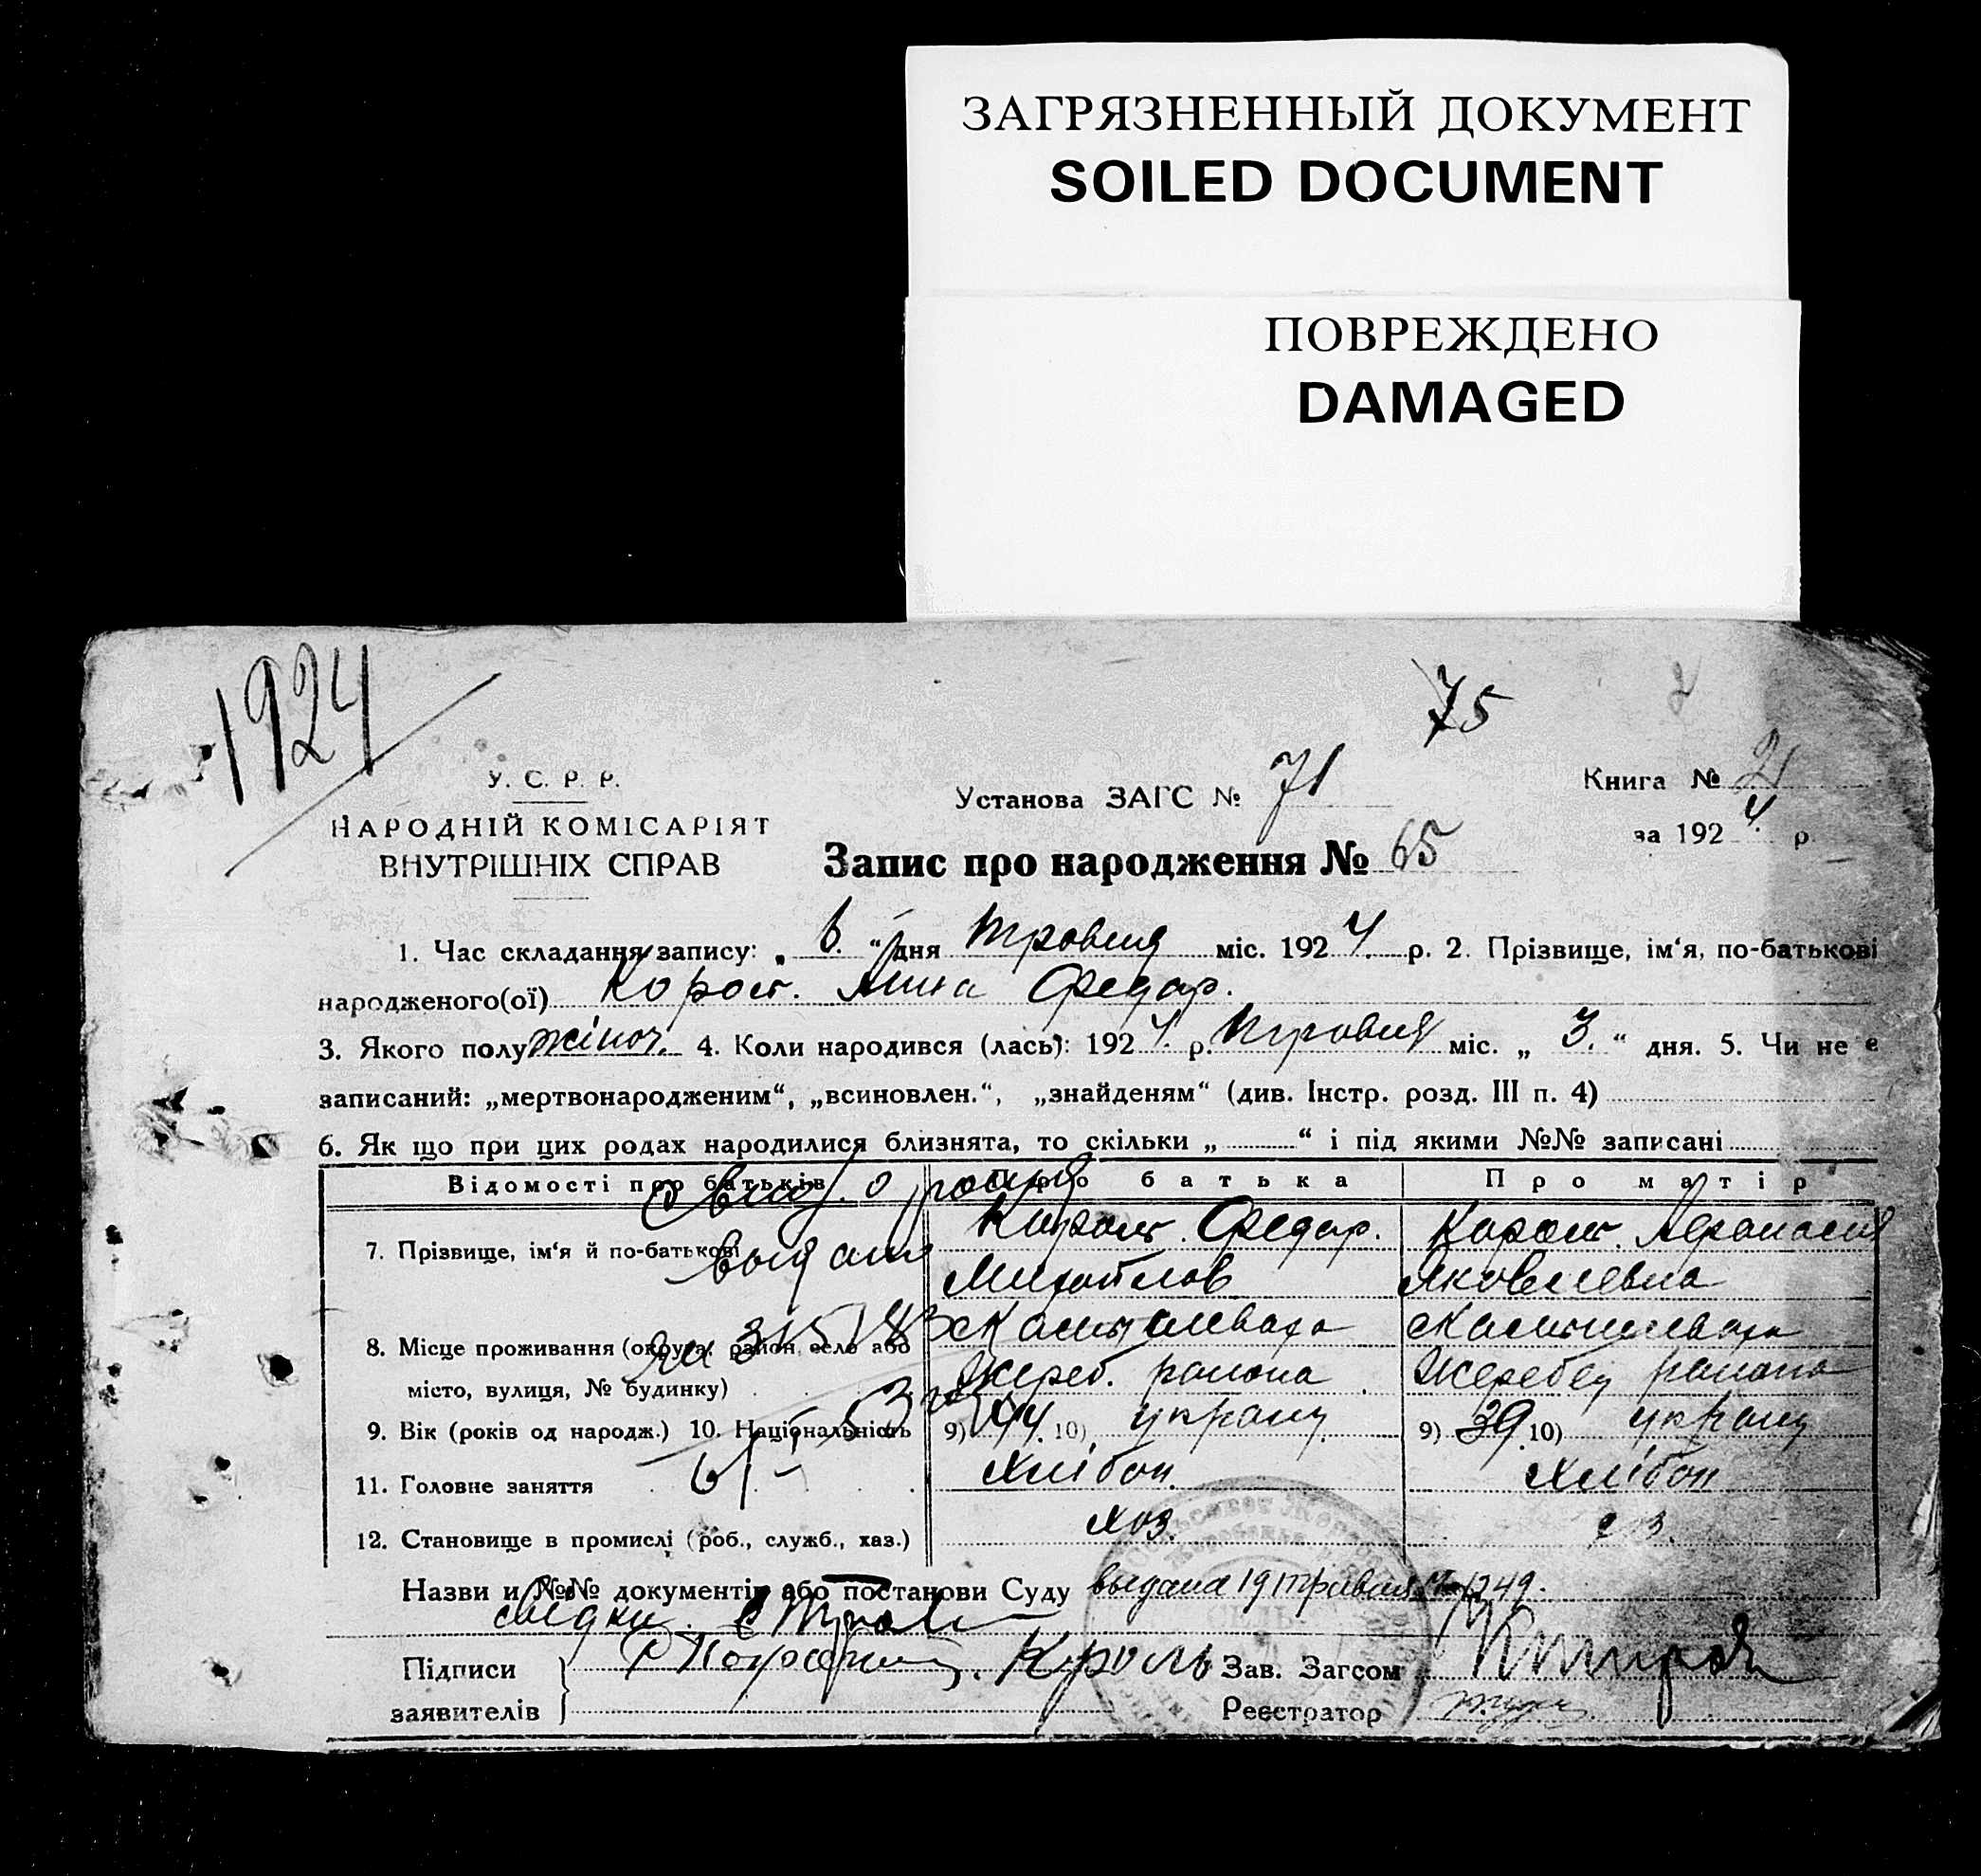 ЗАГРЯЗНЕННЫЙ ДОКУМЕНТ
SOILED DOCUMENT
ПОВРЕЖДЕНО
DAMAGED
1924
75
У. С. Р. Р.
НАРОДНІЙ КОМІСАРІЯТ
ВНУТРІШНІХ СПРАВ
Установа ЗАГС № 71
Книга №
за 192 4 р.
Запис про народження № 65
1. Час складання запису: „ 6. “ дня травня міс. 192 4. р. 2. Прізвище, ім‘я, по-батькові
народженого(ої) Анна Федар.
3. Якого полу жіноч. 4. Коли народився (лась): 192 4. р. травня міс. „ 3. “ дня. 5. Чи не є
записаний: „мертвонародженим“, „всиновлен.“, „знайденям“ (див. Інстр. розд. III п. 4)
6. Як що при цих родах народилися близнята, то скільки „ “ і під якими №№ записані
Відомості про батьків Про батька Про матір
7. Прізвище, ім‘я й по-батькові Федар.
Яковлевна
8. Місце проживання (округа, район, село або
місто, вулиця, № будинку) Жереб. района Жеребец района
9. Вік (років од народж.) 10. Національність 9) 44. 10) украин 9) 39. 10) украин
11. Головне заняття Хлібоп. Хлібоп
12. Становище в промислі (роб., служб., хаз.) хоз.
Назви и №№ документів або постанови Суду выдана 19 травня 1249.
свідки
Підписи Король Зав. Загсом
заявителів Реєстратор